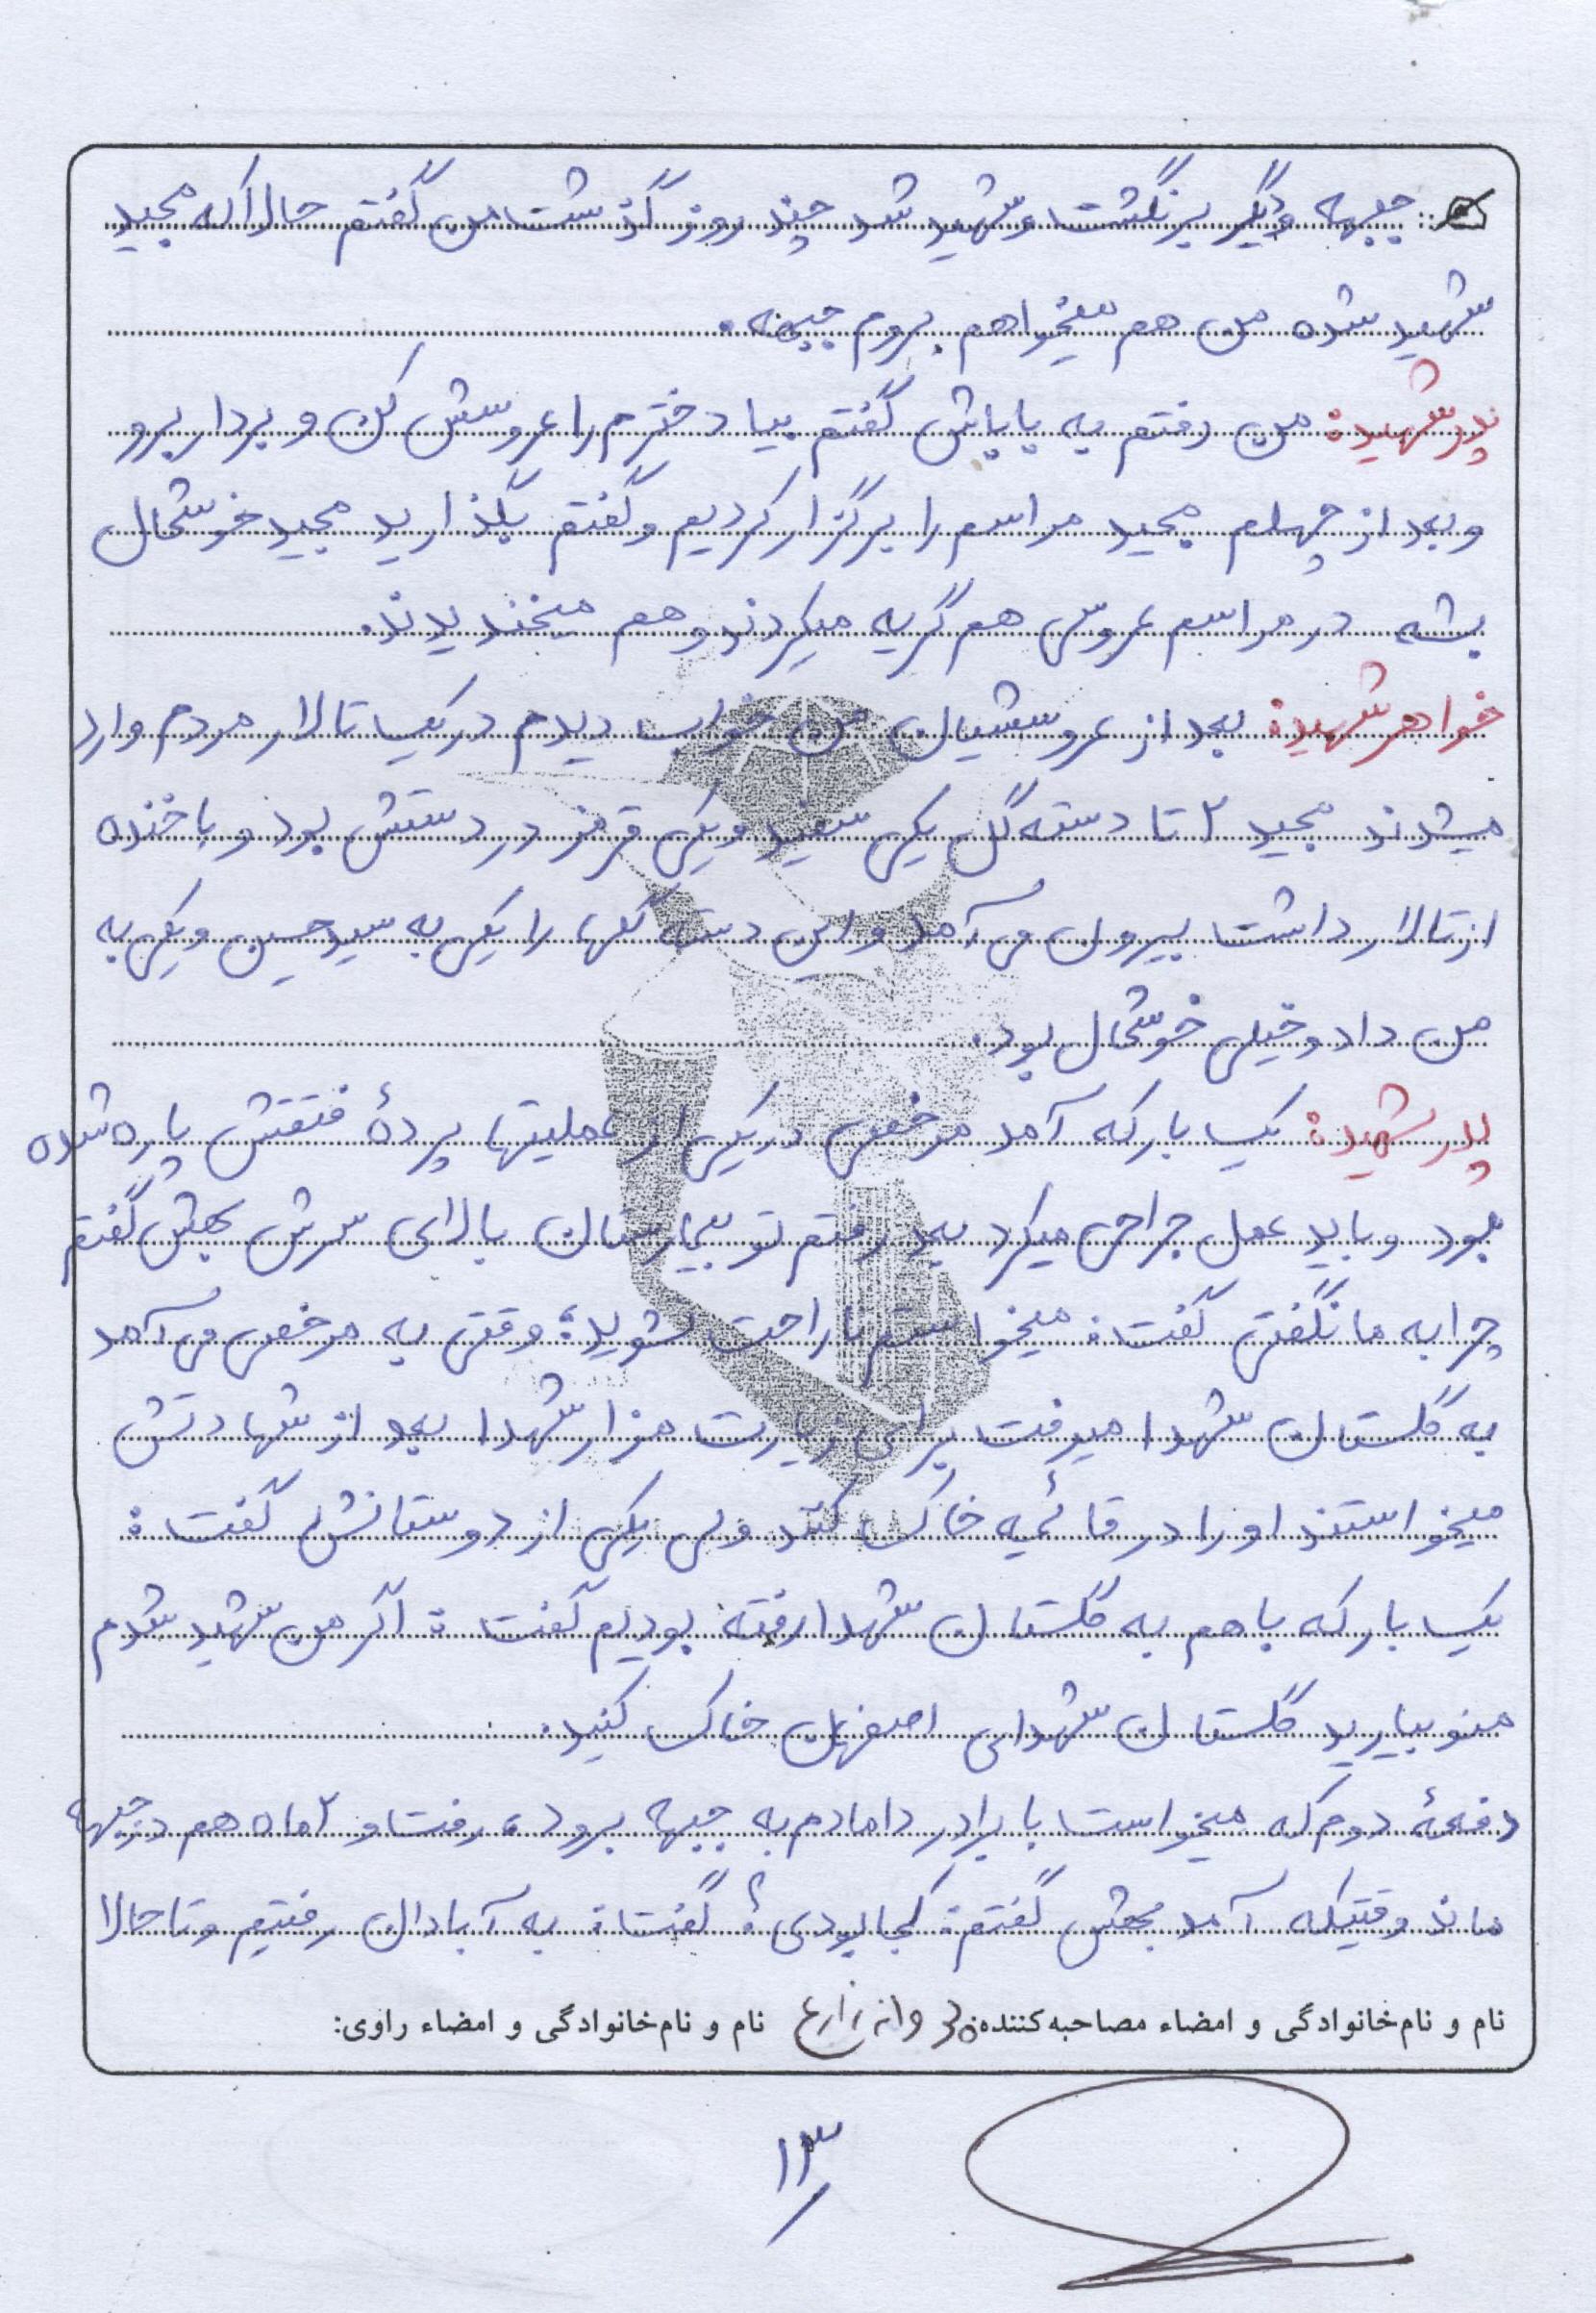 جبهه دیگر برنگشت و شهید شد چند روز گذشت من گفتم حالا که مجید
شهید شده من هم میخواهم بروم جبهه.
پدر شهید: من رفتم به باباش گفتم بیا دخترم را عروسش کن و بردار برو
و بعد از چهلم مجید مراسم را برگزار کردیم و گفتم بگذارید مجید خوشحال
بشه در مراسم عروسی هم گریه میکردند و هم میخندیدند.
خواهر شهید: بعد از عروسشیان من خواب دیدم در یک تالار مردم وارد
میشدند مجید ۲ تا دسته گل یکی سفید و یکی قرمز در دستش بود و با خنده
از تالار داشت بیرون می آمد و این دسته گلها را یکی به سیدحسین و یکی به
من داد و خیلی خوشحال بود.
پدر شهید: یک بار که آمد مرخصی در یکی از عملیتها پردهٔ فتقش پاره شده
بود و باید عمل جراحی میکرد بعد رفتم تو بیمارستان بالای سرش بهش گفتم
چرا به ما نگفتی گفت: میخواستم ناراحت نشوید؛ وقتی به مرخصی می آمد
به گلستان شهدا میرفت برای زیارت مزار شهدا بعد از شهادتش
میخواستند او را در قائمیه خاک کنند ولی یکی از دوستانش گفت:
یک بار که با هم به گلستان شهدا رفته بودیم گفت: اگر من شهید شدم
منو بیارید گلستان شهدای اصفهان خاک کنید.
دفعهٔ دوم که میخواست با برادر دامادم به جبهه برود، رفت و ۲ ماه هم در جبهه
ماند وقتیکه آمد بهش گفتم: کجا بودی؟ گفت: به آبادان رفتیم و تا حالا
نام و نام‌خانوادگی و امضاء مصاحبه‌کننده: زارع نام و نام‌خانوادگی و امضاء راوی:
۱۳